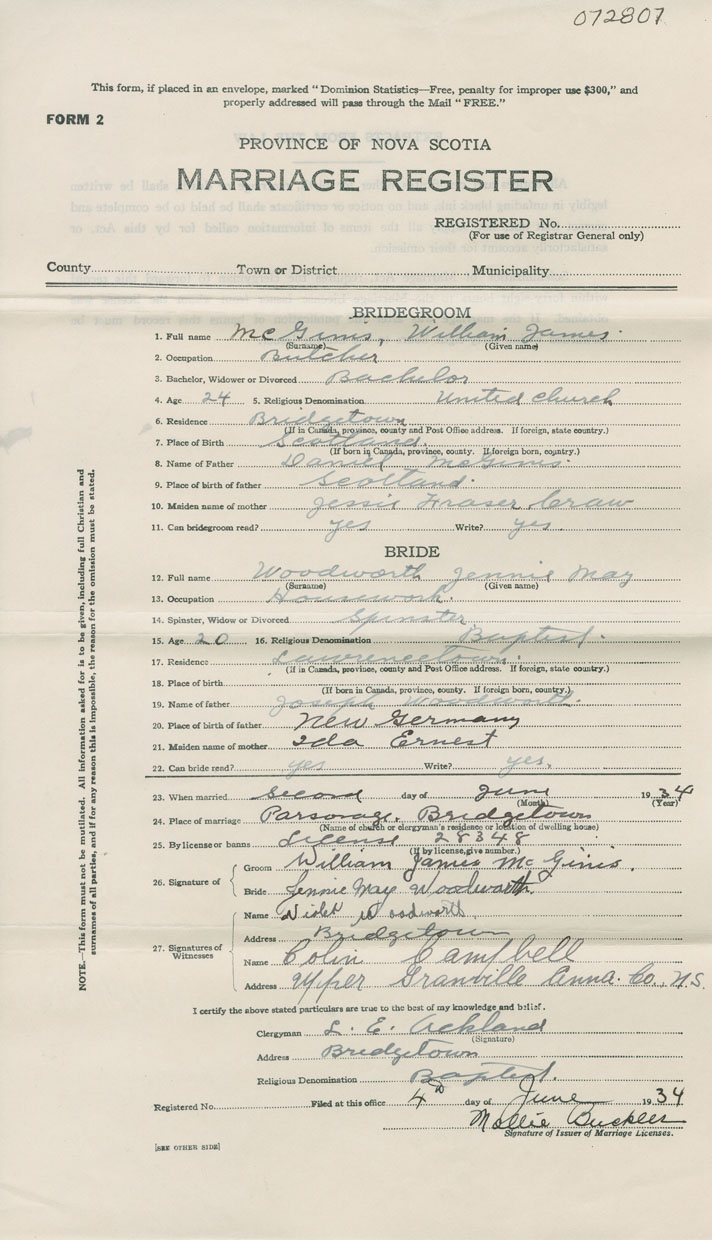 072807
This form, if placed in an envelope, marked "Dominion Statistics—Free, penalty for improper use $300," and
properly addressed will pass through the Mail "FREE."
FORM 2
PROVINCE OF NOVA SCOTIA
MARRIAGE REGISTER
REGISTERED No.
(For use of Registrar General only)
County Town or District Municipality
BRIDEGROOM
1. Full name McGinis, William James.
(Surname) (Given name)
2. Occupation Butcher
3. Bachelor, Widower or Divorced Bachelor
4. Age 24 5. Religious Denomination United Church
6. Residence Bridgetown
(If in Canada, province, county and Post Office address. If foreign, state country.)
7. Place of Birth Scotland.
(If born in Canada, province, county. If foreign born, country.)
8. Name of Father Daniel McGinis.
9. Place of birth of father Scotland.
10. Maiden name of mother Jessie Fraser Craw
11. Can bridegroom read? yes Write? yes.
BRIDE
12. Full name Woodworth Jennie May
(Surname) (Given name)
13. Occupation Housework.
14. Spinster, Widow or Divorced Spinster
15. Age 20 16. Religious Denomination Baptist.
17. Residence Lawrencetown.
(If in Canada, province, county and Post Office address. If foreign, state country.)
18. Place of birth
(If born in Canada, province, county. If foreign born, country.)
19. Name of father Joseph Woodworth.
20. Place of birth of father New Germany
21. Maiden name of mother Ida Ernest
22. Can bride read? yes Write? yes.
23. When married Second day of June 1934
(Month) (Year)
24. Place of marriage Parsonage, Bridgetown
(Name of church or clergyman's residence or location of dwelling house)
25. By license or banns License 28348
(If by license, give number.)
26. Signature of Groom William James McGinis.
Bride Jennie May Woodworth.
27. Signatures of Witnesses
Name Violet Woodworth
Address Bridgetown
Name Colin Campbell
Address Upper Granville Anna. Co., N.S.
I certify the above stated particulars are true to the best of my knowledge and belief.
Clergyman L. E. Ackland
(Signature)
Address Bridgetown
Religious Denomination Baptist.
Registered No. Filed at this office 4th day of June 1934
Mollie Buckler
Signature of Issuer of Marriage Licenses.
[SEE OTHER SIDE]
NOTE.—This form must not be mutilated. All information asked for is to be given, including full Christian and
surnames of all parties, and if for any reason this is impossible, the reason for the omission must be stated.